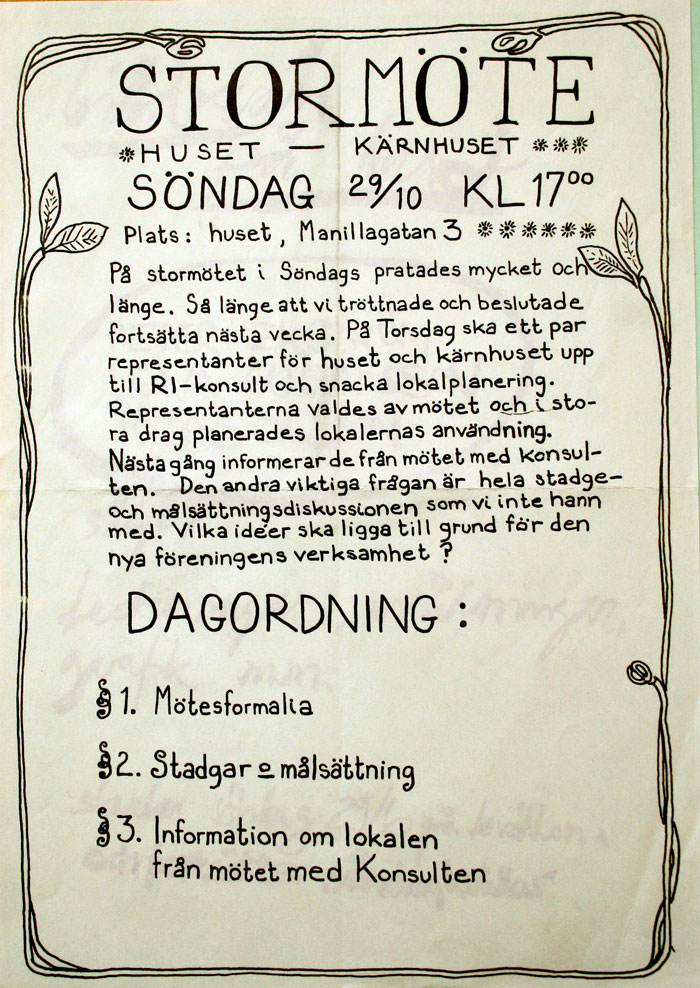 STORMÖTE
*HUSET — KÄRNHUSET ***
SÖNDAG 29/10 KL 17⁰⁰
Plats: huset, Manillagatan 3 ******
På stormötet i Söndags pratades mycket och
länge. Så länge att vi tröttnade och beslutade
fortsätta nästa vecka. På Torsdag ska ett par
representanter för huset och kärnhuset upp
till RI-konsult och snacka lokalplanering.
Representanterna valdes av mötet och i sto-
ra drag planerades lokalernas användning.
Nästa gång informerar de från mötet med konsul-
ten. Den andra viktiga frågan är hela stadge-
och målsättningsdiskussionen som vi inte hann
med. Vilka idéer ska ligga till grund för den
nya föreningens verksamhet?
DAGORDNING:
§ 1. Mötesformalia
§ 2. Stadgar o målsättning
§ 3. Information om lokalen
från mötet med Konsulten